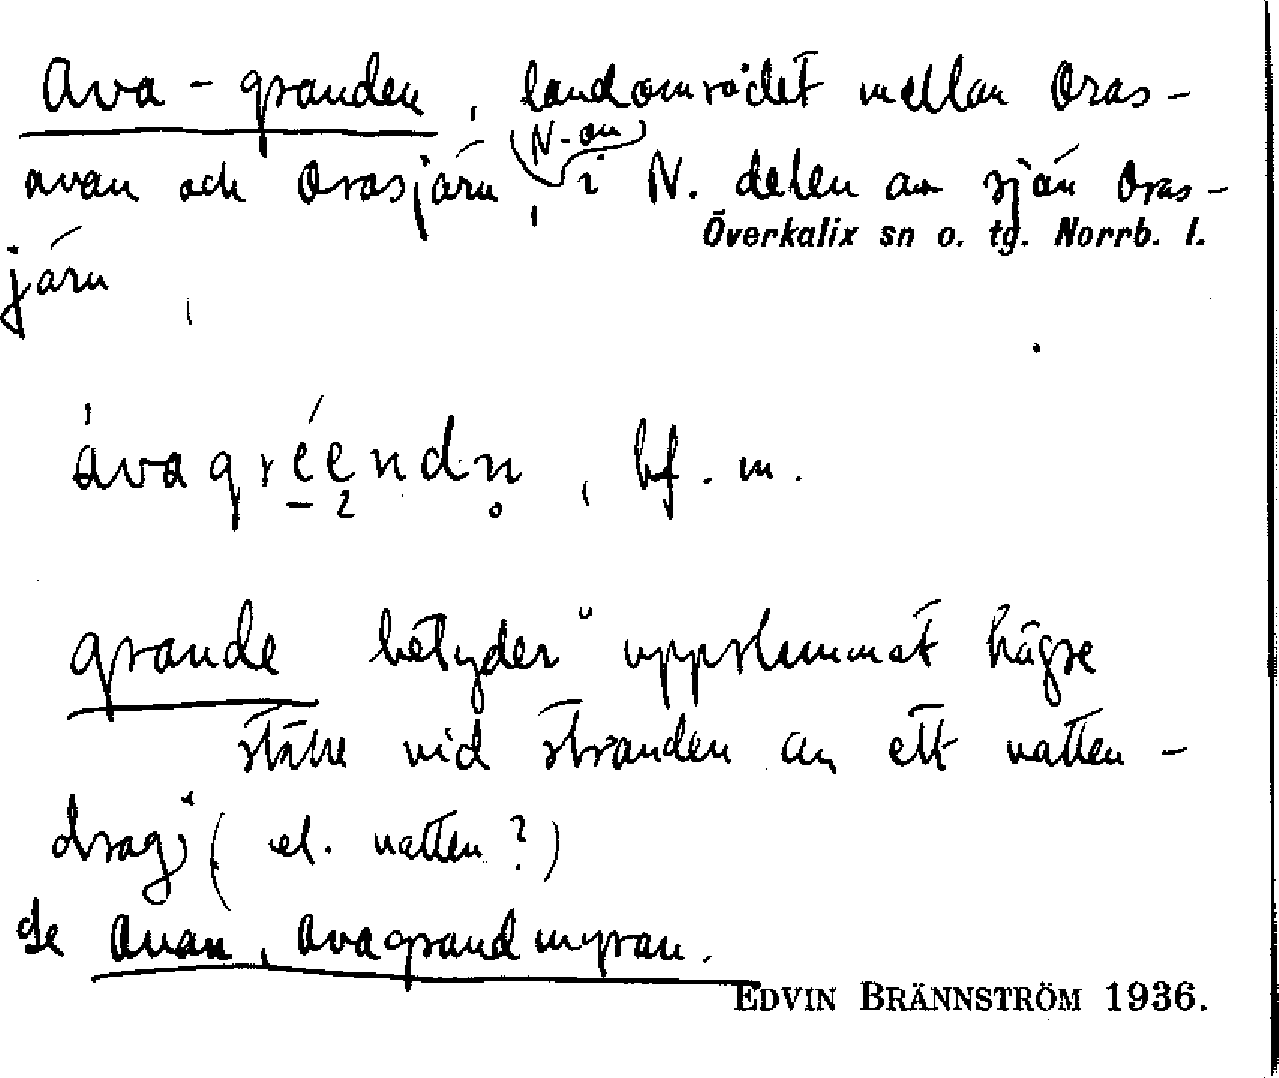 Ava-granden, landområdet mellan Oras-
N-on
avan och Orasjärn, i N. delen av sjön Oras-
Överkalix sn o. tg. Norrb. l.
järn,
ávagréendn̥, bf. m.
grande betyder "uppslammat högre
ställe vid stranden av ett vatten-
drag; (el. vatten?)
Se Avan, Avagrandmyran.
EDVIN BRÄNNSTRÖM 1936.